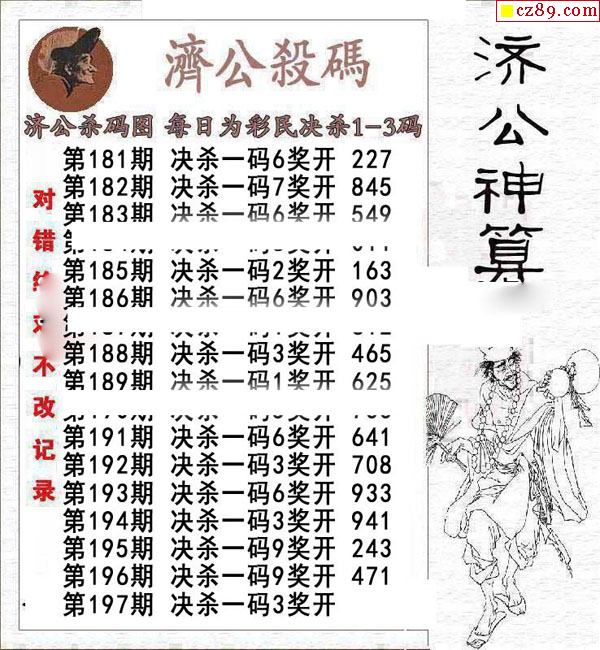 cz89.com
濟公殺碼
济公杀码图 每日为彩民决杀1-3码
第181期 决杀一码6奖开 227
第182期 决杀一码7奖开 845
第183期 决杀一码6奖开 549
第185期 决杀一码2奖开 163
第186期 决杀一码6奖开 903
第188期 决杀一码3奖开 465
第189期 决杀一码1奖开 625
第191期 决杀一码6奖开 641
第192期 决杀一码3奖开 708
第193期 决杀一码6奖开 933
第194期 决杀一码3奖开 941
第195期 决杀一码9奖开 243
第196期 决杀一码9奖开 471
第197期 决杀一码3奖开
对错
不改记录
济公神算